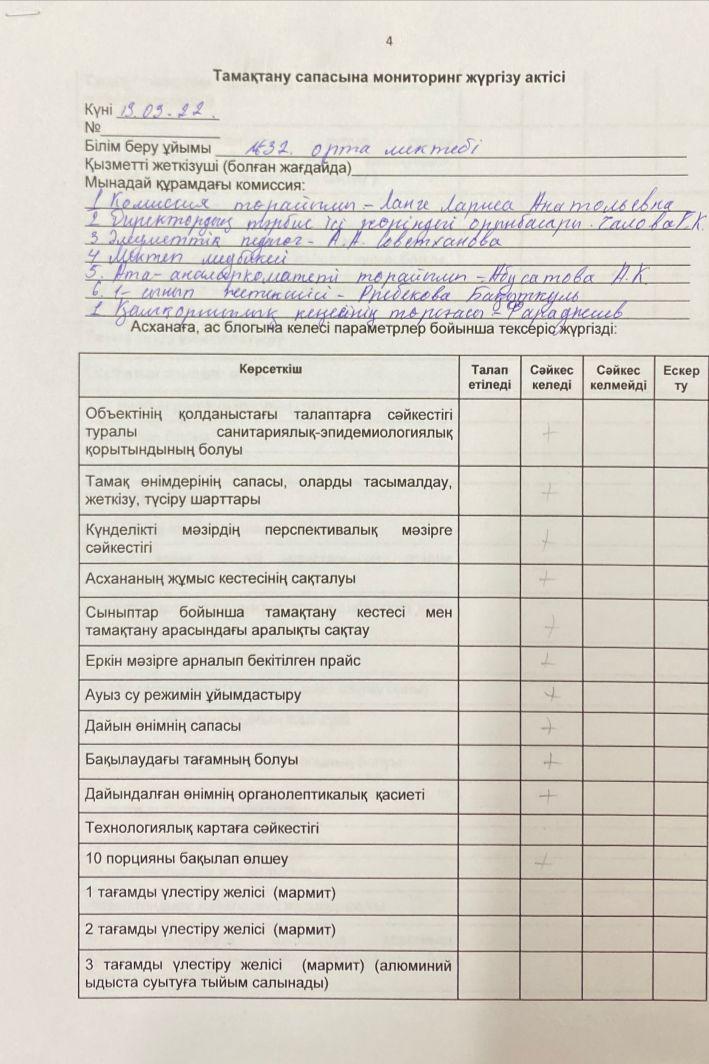 4
Тамақтану сапасына мониторинг жүргізу актісі
Күні 19.03.22.
№
Білім беру ұйымы №32. орта мектебі
Қызметті жеткізуші (болған жағдайда)
Мынадай құрамдағы комиссия:
1 Комиссия торайғып - Ланге Лариса Анатольевна
2 Директордың тәрбие ісі жөніндегі орынбасары
3 Әлеуметтік педагог - А.А. Советханова
4 Мектеп медбикесі
5. Ата-аналар - Абусатова А.К.
6. 1-сынып жетекшісі - Бақыткуль
1 Қамқоршылық кеңесінің төрағасы -
Асханаға, ас блогына келесі параметрлер бойынша тексеріс жүргізді:
Көрсеткіш Талап Сәйкес Сәйкес Ескер
етіледі келеді келмейді ту
Объектінің қолданыстағы талаптарға сәйкестігі
туралы санитариялық-эпидемиологиялық +
қорытындының болуы
Тамақ өнімдерінің сапасы, оларды тасымалдау, +
жеткізу, түсіру шарттары
Күнделікті мәзірдің перспективалық мәзірге +
сәйкестігі
Асхананың жұмыс кестесінің сақталуы +
Сыныптар бойынша тамақтану кестесі мен +
тамақтану арасындағы аралықты сақтау
Еркін мәзірге арналып бекітілген прайс +
Ауыз су режимін ұйымдастыру +
Дайын өнімнің сапасы +
Бақылаудағы тағамның болуы +
Дайындалған өнімнің органолептикалық қасиеті +
Технологиялық картаға сәйкестігі
10 порцияны бақылап өлшеу +
1 тағамды үлестіру желісі (мармит)
2 тағамды үлестіру желісі (мармит)
3 тағамды үлестіру желісі (мармит) (алюминий
ыдыста суытуға тыйым салынады)